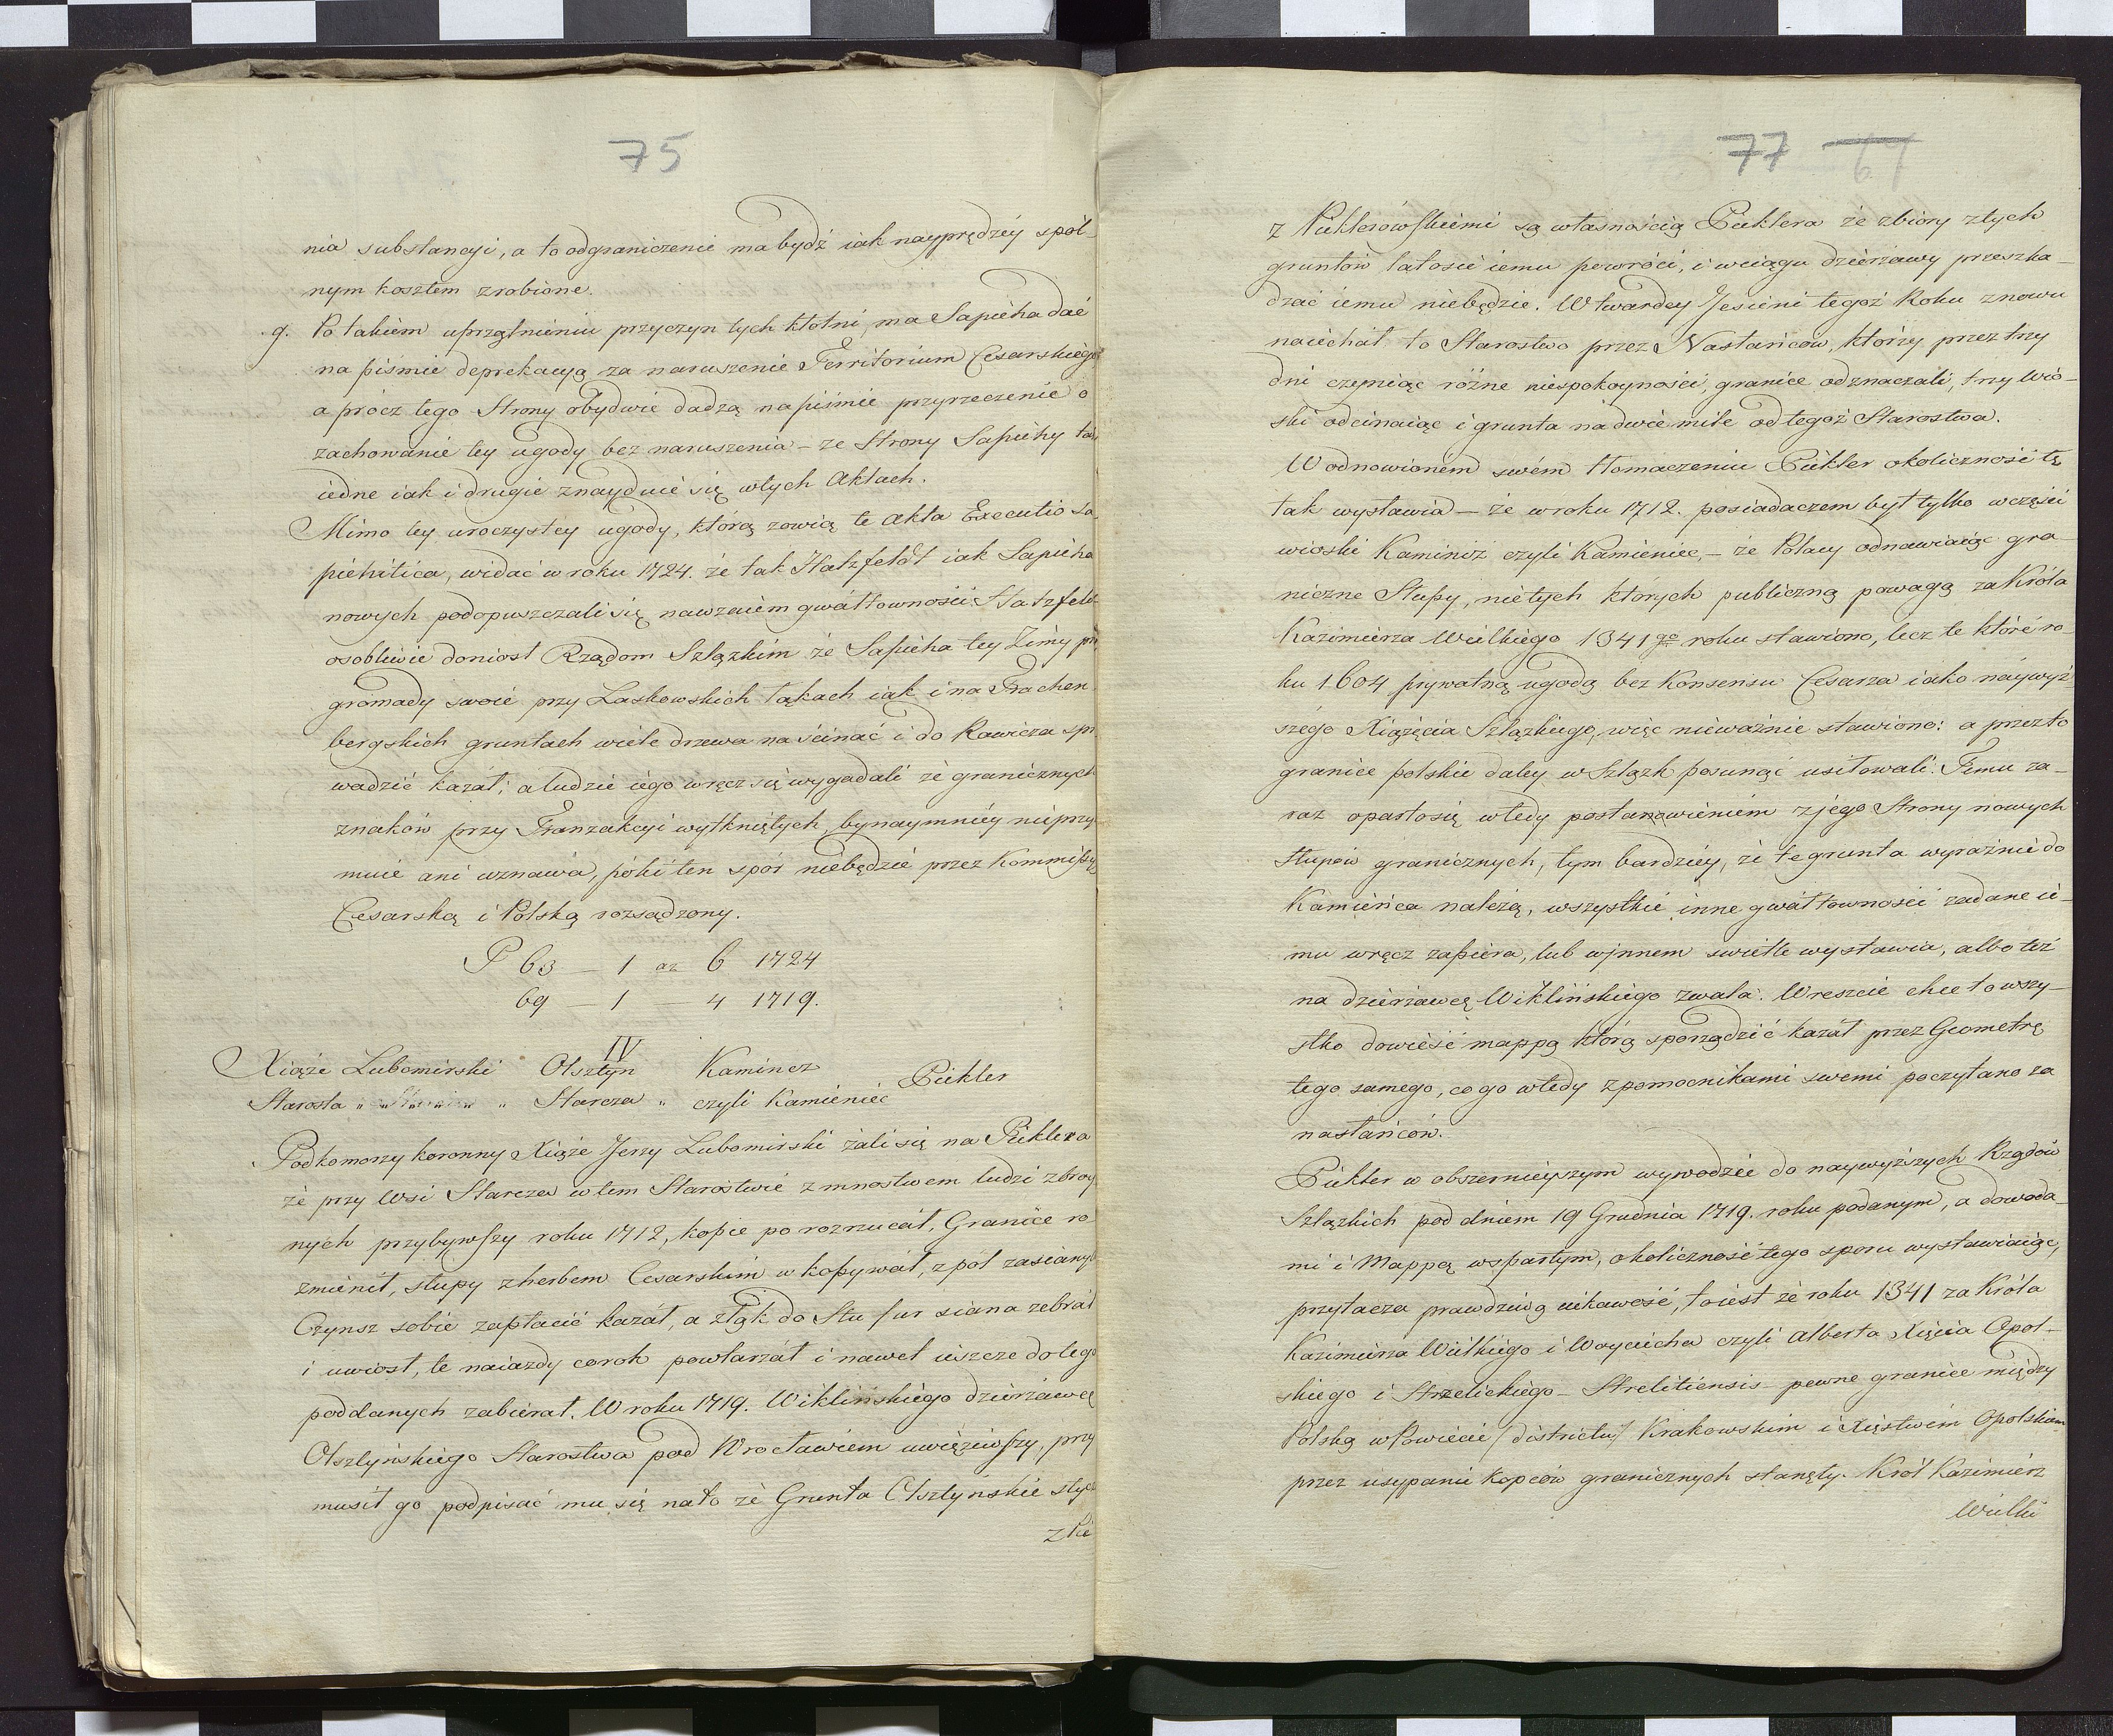 75
nia substancyi, a to odgraniczenie ma bydź iak nayprędzéy spól-
nym kosztem zrobione.
9. Po takiém uprzątnieniu przyczyn tych kłotni, ma Sapieha dać
na piśmie deprekacyą za naruszenie Territorium Cesarskiego
a prócz tego Strony obydwie dadzą na piśmie przyrzeczenie o
zachowanie tey ugody bez naruszenia – ze Strony Sapiehy tak
iedne iak i drugie znayduie się w tych Aktach.
Mimo tey uroczystey ugody, którą zowią te akta Executio Sa
piehitica, widać w roku 1724. że tak Hatzfeldt iak Sapieha
nowych podopuszczali się nawzaiem gwałtowności. Hatzfeldt
osobliwie doniosł Rządom Szlązkim że Sapieha tey Zimy prz
gromady swoie przy Laskowskich łąkach iak i na Trachen
bergskich gruntach wiele drzewa naścinać i do Rawicza spr
wadzić kazał; a ludzie iego wręcz się wygadali że granicznych
znaków przy Tranzakcyi wytkniętych, bynaymniéy nieprzy
muie ani uznawa, póki ten spór niebędzie przez Kommissyą
Cesarską i Polską rozsądzony.
P 63 – 1 az 6 1724
69 – 1 – 4 1719.
IV
Xiąże Lubomirski Olsztyn Kamincz Pückler
Starosta " " " " " Starcza " czyli Kamieniec
Podkomorzy koronny Xiąże Jerzy Lubomirski żali się na Pücklera
że przy Wsi Starcza w tem Starostwie z mnostwem ludzi zbroy
nych przybywszy roku 1712, kopce porozrzucał, Granice ro
zmienił, słupy z herbem Cesarskim wkopywał, z pól zasianych
Czynsz sobie zapłacić kazał, a z łąk do Stu fur siana zebrał
i uwiosł, te naiazdy corok powtarzał i nawet ieszcze do tego
poddanych zabierał. W roku 1719. Wiklińskiego dzierżawcę
Olsztyńskiego Starostwa pod Wrocławiem uwięziwszy, przy
musił go podpisać mu się na to że Grunta Olsztyńskie stycz
z Pü
77 69
z Pücklerówskiémi są własnością Pücklera że zbiory z tych
gruntów latosie iemu powróci, i wciągu dzierżawy przeszka-
dzać iemu niebędzie. W twardey Jesieni tegoż Roku znowu
naiechał to Starostwo przez Nastańców, którzy przez trzy
dni czyniąc różne niespokoyności, granice odznaczali, trzy wio-
ski odcinaiąc i grunta na dwie mile od tegoż Starostwa.
W odnowioném swém tłomaczeniu Pückler okoliczność tę
tak wystawia – że w roku 1712. posiadaczem był tylko w części
wioski Kaminiz czyli Kamieniec, – że Polacy odnawiaiąc gra-
niczne Słupy, nie tych których publiczną powagą za Króla
Kazimierza Wielkiego 1341go roku stawiono, lecz te które ro-
ku 1604 prywatną ugodą bez Konsensu Cesarza iako náywyż-
szégo Xiążęcia Szląskiego, więc nieważnie stawiono: a przez to
granice polskie daley w Szlązk posunąć usiłowali. Temu za-
raz oparło się wtedy postanowieniem z jego Strony nowych
słupów granicznych, tym bardziéy, że te grunta wyraźnie do
Kamieńca należą, wszystkie inne gwałtowności zadane ie-
mu wręcz zapiera, lub w jnnem swietle wystawia, albo też
na dzierżawcę Wiklińskiego zwala. Wreszcie chce to wszy-
stko dowieść mappą którą sporządzić kazał przez Geometrę
tego samego, co go wtedy z pomocnikami swemi poczytano za
nastańców.
Pückler w obszernieyszym wywodzie do naywyższych Rządów
Szlązkich pod dniem 19 Grudnia 1719. roku podanym, a dowoda-
mi i Mappą wspartym, okoliczność tego sporu wystawiaiąc,
przytacza prawdziwą ciekawość, to iest że roku 1341 za Króla
Kazimierza Wielkiego i Woyciecha czyli Alberta Xięcia Opol-
skiego i Strzelickiego – Strelitiensis – pewne granice między
Polską w Powiecie /districtu/ Krakowskim i Xięstwem Opolskiem
przez usypanie kopców granicznych stanęły. Król Kazimierz
Wielki